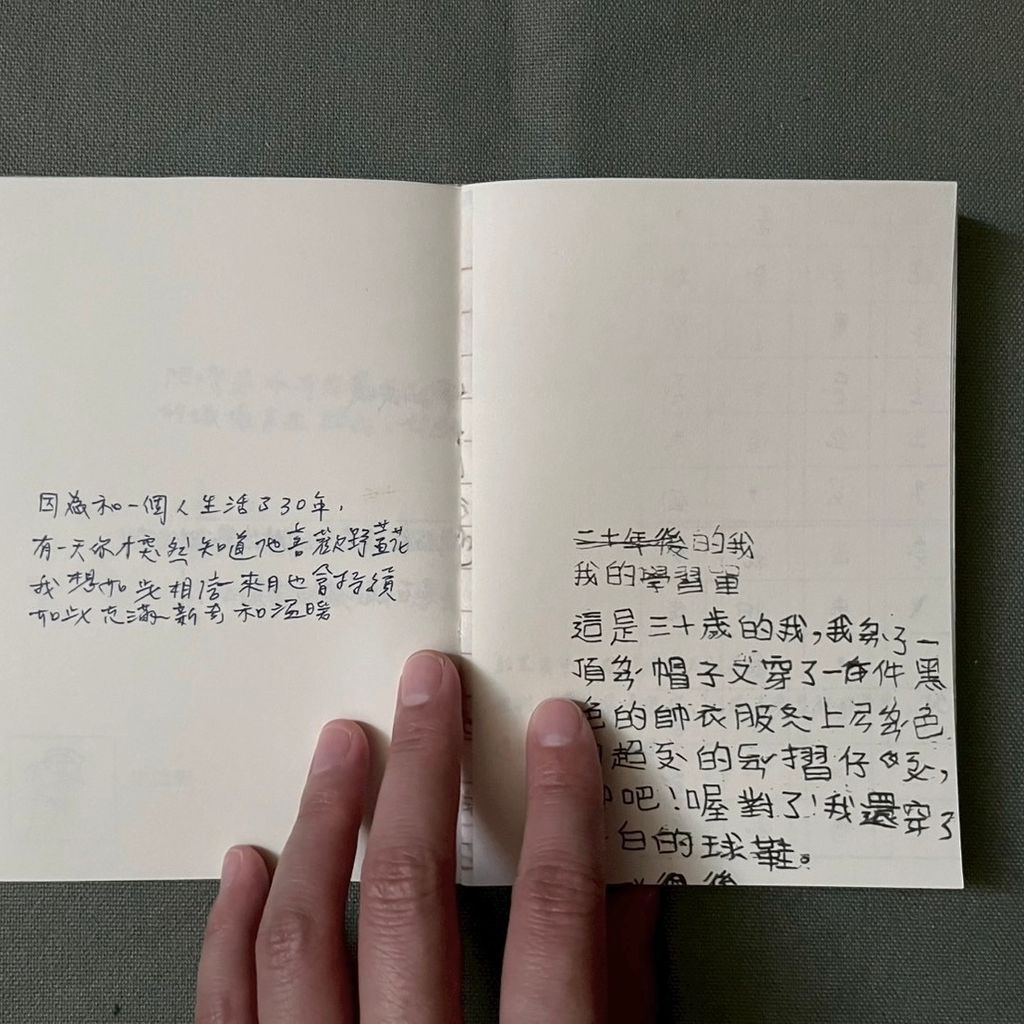 因為和一個人生活了30年，
有一天你才突然知道他喜歡野薑花
我想如此相信來日也會持續
如此充滿新奇和溫暖
三十年後的我
我的學習單
這是三十歲的我，我了一
頂帽子又穿了一件黑
色的帥衣服上色
超的摺仔
吧！喔對了！我還穿了
白的球鞋。
後